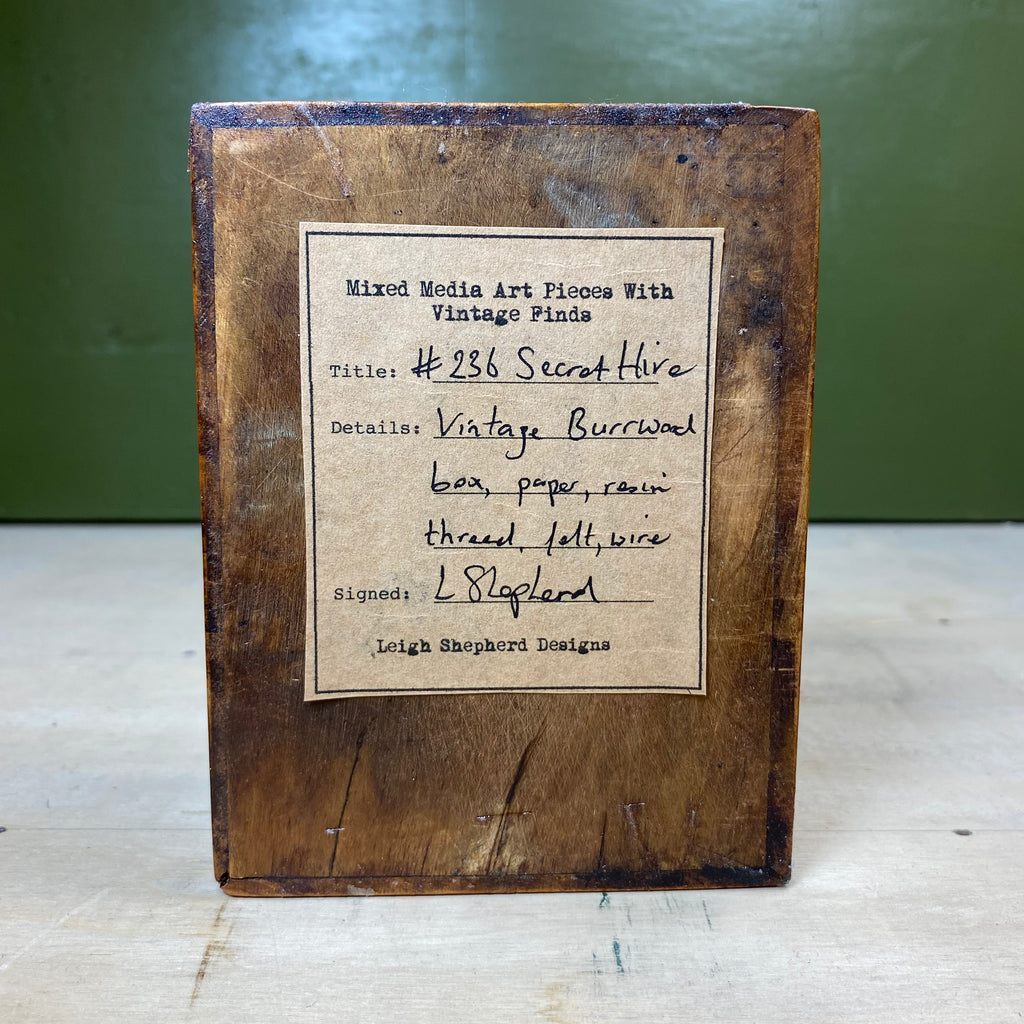 Mixed Media Art Pieces With
Vintage Finds
Title: #236 Secret Hive
Details: Vintage Burrwood
box, paper, resin
thread, felt, wire
Signed: L Shepherd
Leigh Shepherd Designs